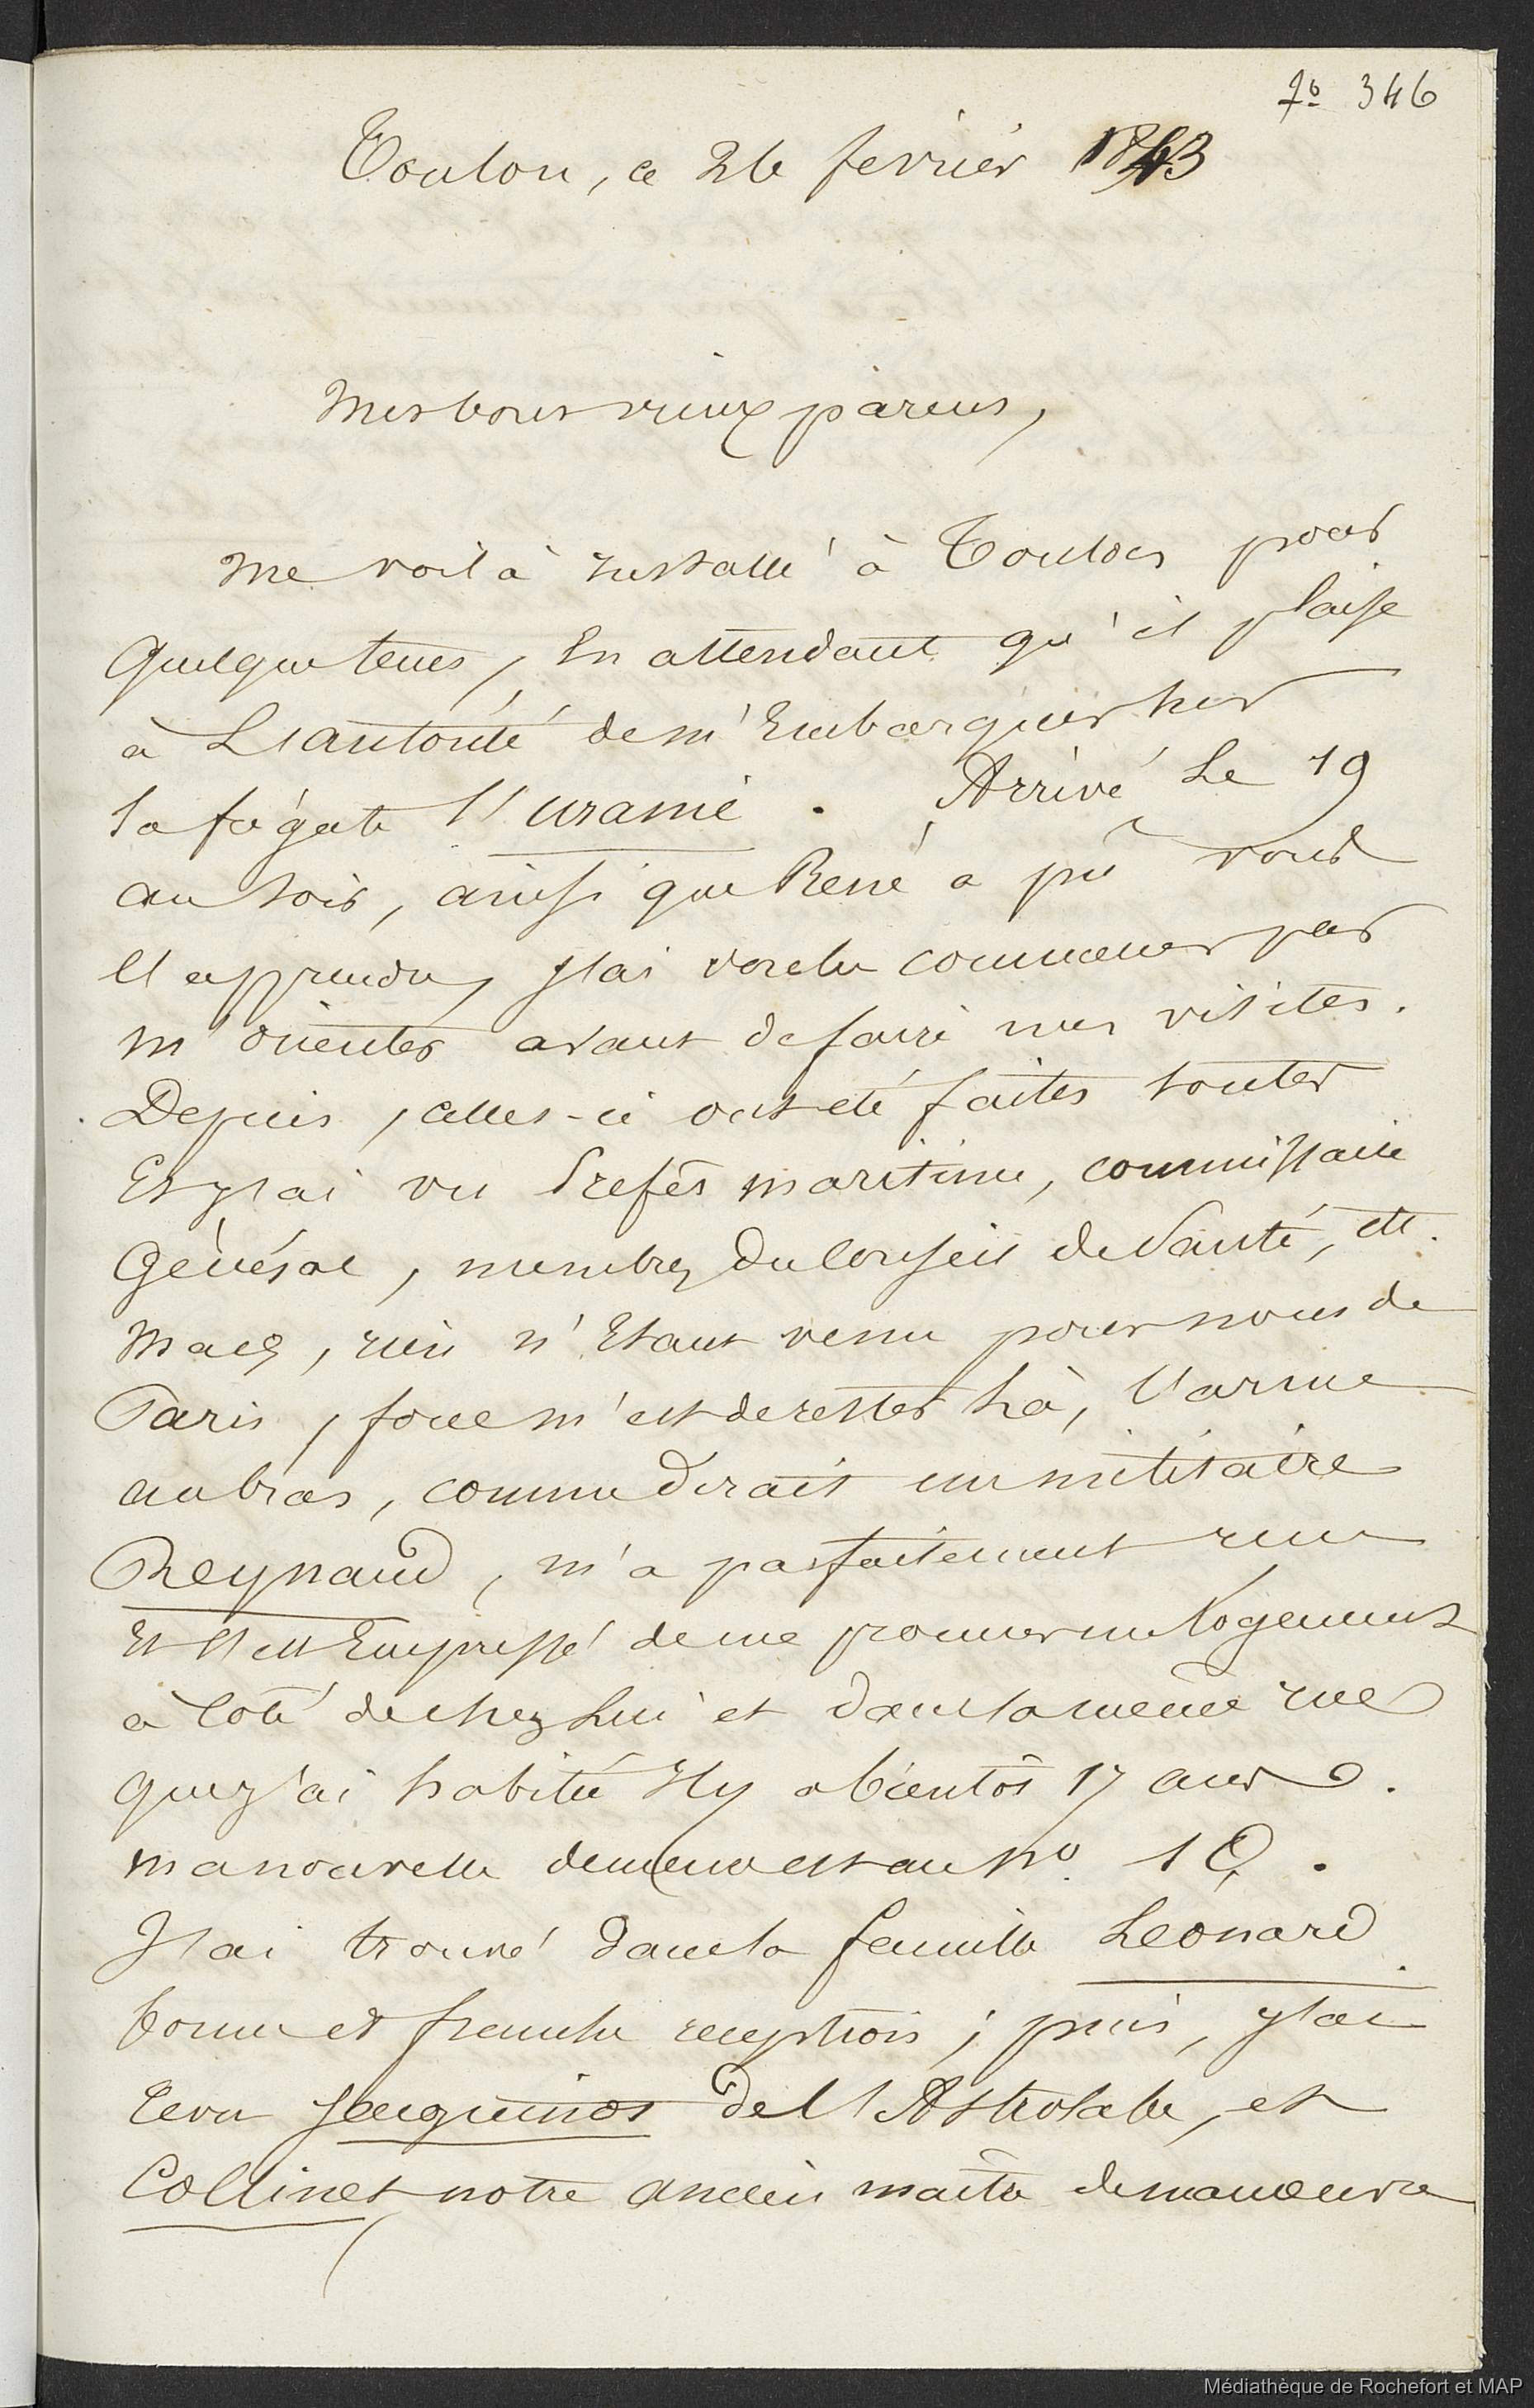 fo 346
Toulon, ce 26 février 1843
Mes bons vieux parens,
Me voilà installé à Toulon pour
quelque tems, en attendant qu'il plaise
à L'autorité de m'Embarquer sur
la frégate l'uranie. Arrivé Le 19
au soir, ainsi que René a pû vous
l'apprendre, j'ai voulu commencer par
m'orienter avant de faire mes visites.
Depuis, celles-ci ont été faites toutes
Et j'ai vu Préfet maritime, commissaire
Général, membres du Conseil de Santé, etc.
Mais, rien n'Etant venu pour nous de
Paris, force m'est de rester là, l'arme
au bras, comme dirait un militaire
Reynaud, m'a parfaitement reçu
Et s'est Empressé de me trouver un logement
à Côté de chez Lui et dans la même rue
que j'ai habitée Il y a bientôt 17 ans.
Ma nouvelle demeure est au No.
J'ai trouvé dans la famille Leonard
bonne et franche reception ; puis, j'ai
revu Jacquinot de l'Astrolabe, et
Collinet notre ancien maître de manoeuvre
Médiathèque de Rochefort et MAP